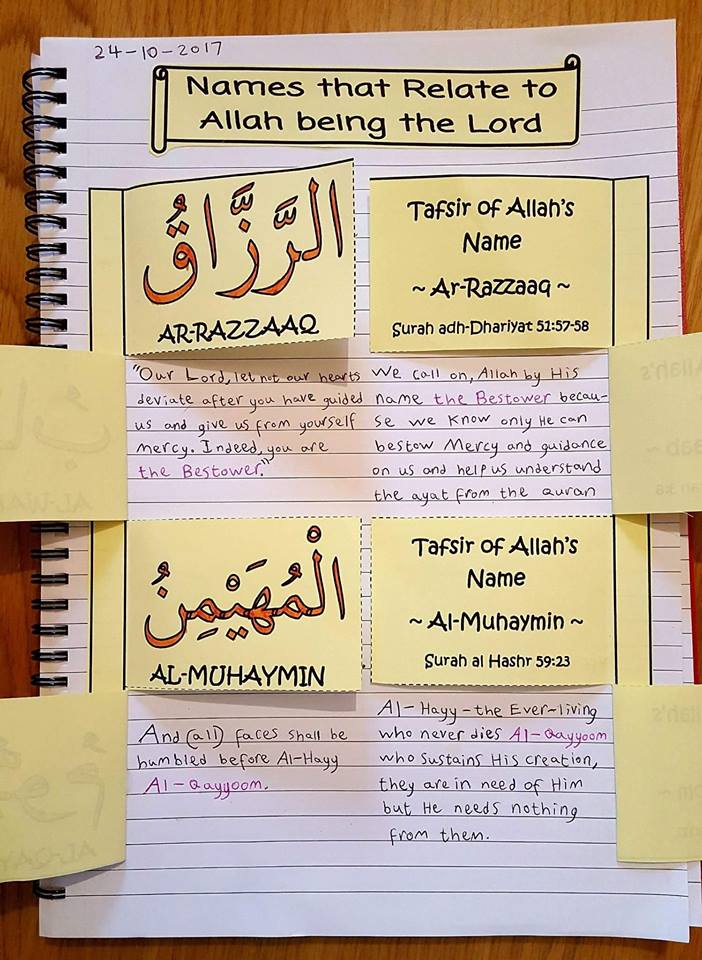 24-10-2017
Names that Relate to
Allah being the Lord
الرَّزَّاقُ
AR-RAZZAAQ
Tafsir of Allah's
Name
~ Ar-Razzaaq ~
Surah adh-Dhariyat 51:57-58
"Our Lord, let not our hearts
deviate after you have guided
us and give us from yourself
mercy. Indeed, you are
the Bestower."
We call on, Allah by His
name the Bestower becau-
se we know only He can
bestow Mercy and guidance
on us and help us understand
the ayat from the quran
الْمُهَيْمِنُ
AL-MUHAYMIN
Tafsir of Allah's
Name
~ Al-Muhaymin ~
Surah al Hashr 59:23
And (all) faces shall be
humbled before Al-Hayy
Al-Qayyoom.
Al-Hayy-the Ever-living
who never dies Al-Qayyoom
who sustains His creation,
they are in need of Him
but He needs nothing
from them.